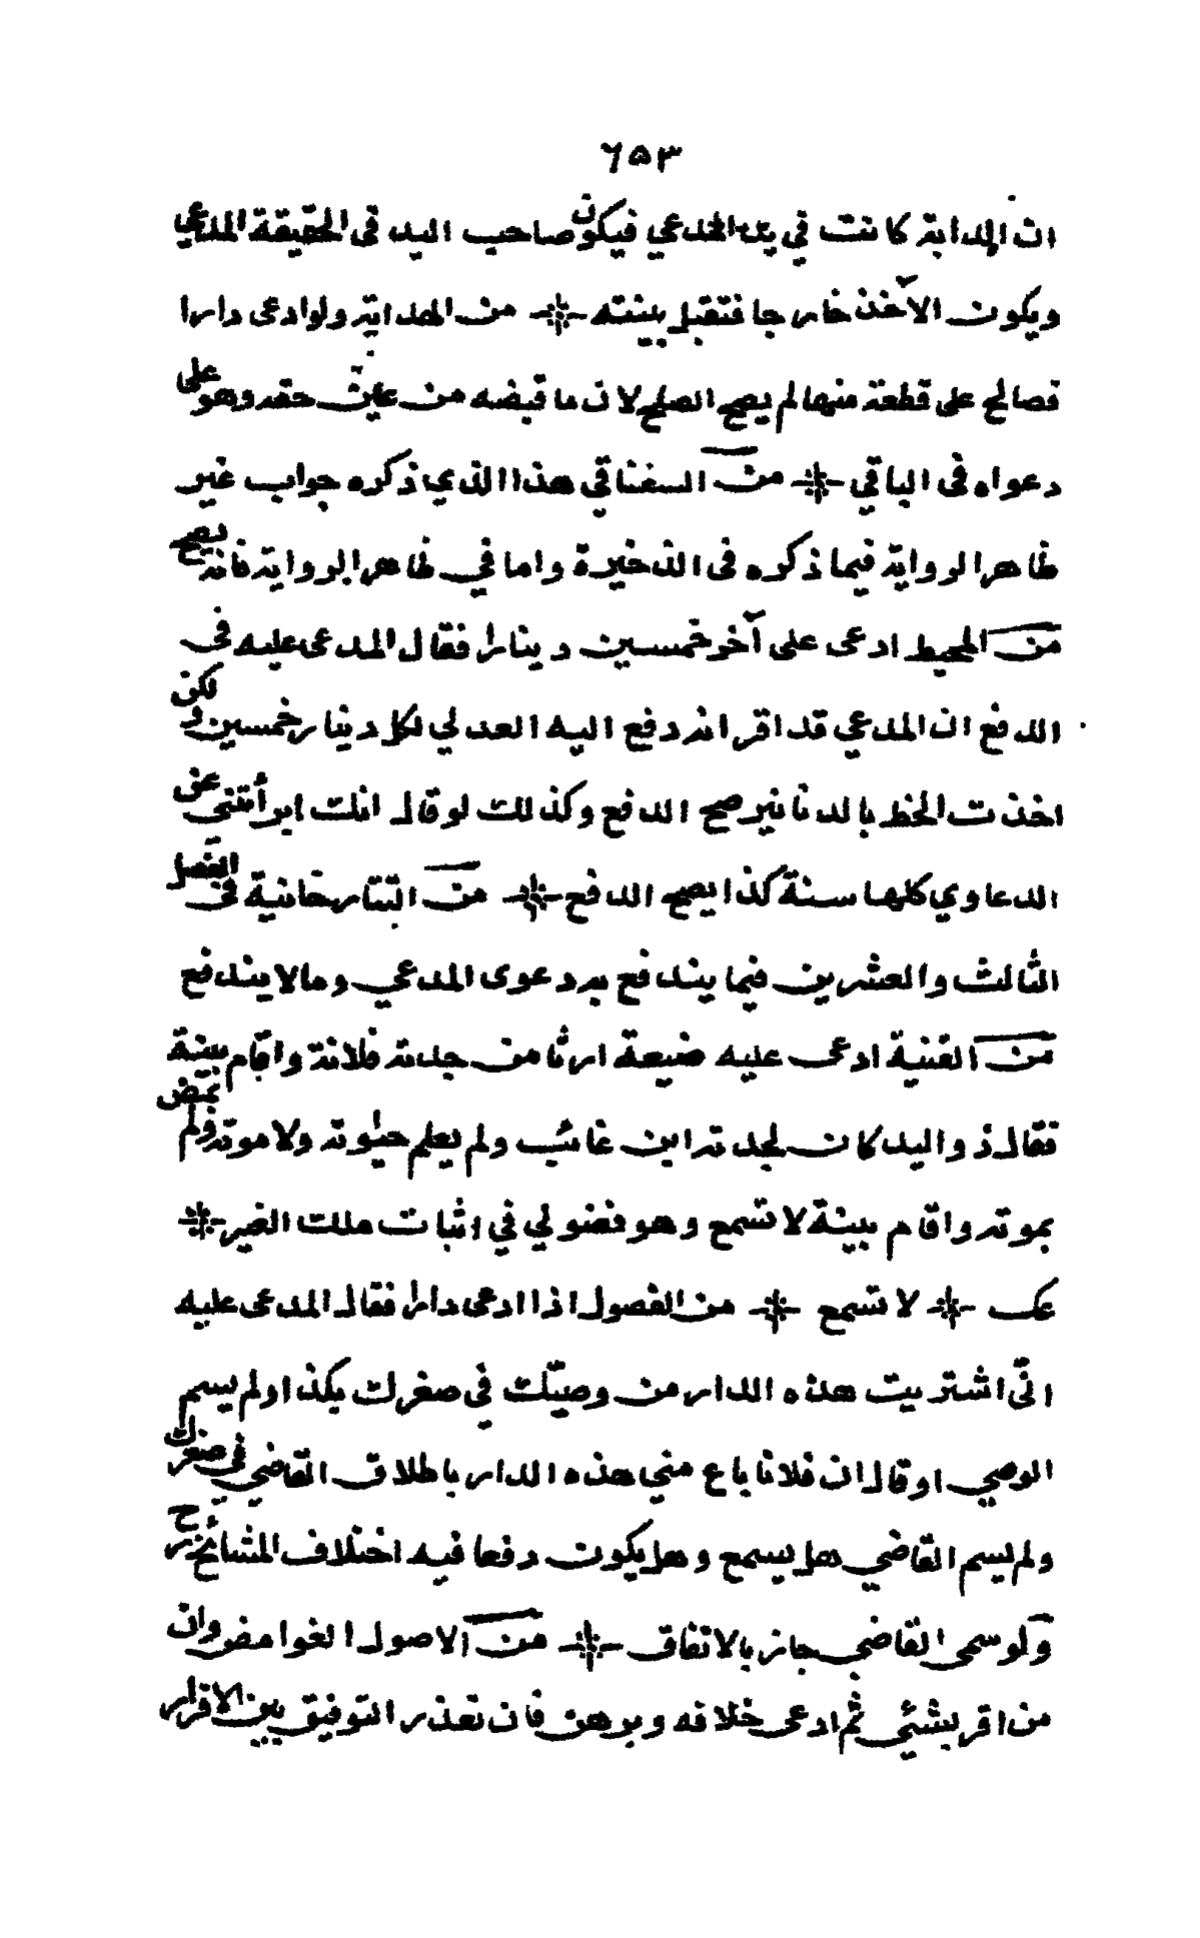 ٦٥٣
ان الدابة كانت في يد المدعي فيكون صاحب اليد فى الحقيقة المدعي
ويكون الآخذ خارجا فتقبل بينته من الهداية ولو ادعى دارا
فصالح على قطعة منها لم يصح الصلح لان ما قبضه من عين حقه وهو على
دعواه فى الباقي من السغناقي هذا الذي ذكره جواب غير
ظاهر الرواية فيما ذكره فى الذخيرة واما في ظاهر الرواية فانه يصح
من المحيط ادعى على آخر خمسين دينارا فقال المدعى عليه فى
الدفع ان المدعي قد اقر انه دفع اليه العدلي لكل دينار خمسين ولكن
اخذت الخط بالدنانير صح الدفع وكذلك لو قال انك ابرأتني عن
الدعاوي كلها سنة كذا يصح الدفع من التتارخانية فى الفصل
الثالث والعشرين فيما يندفع به دعوى المدعي وما لا يندفع
من القنية ادعى عليه ضيعة ارثا من جدته فلانة واقام بينة
فقال ذو اليد كان لجدته ابن غائب ولم يعلم حيوته ولا موته ولم يمض
بموته واقام بينة لا تسمع وهو فضولي في اثبات ملك الغير
عك لا تسمع من الفصول اذا ادعى دارا فقال المدعى عليه
انّي اشتريت هذه الدار من وصيّك في صغرك بكذا ولم يسم
الوصي او قال ان فلانا باع مني هذه الدار باطلاق القاضي في صغرك
ولم يسم القاضي هل يسمع وهل يكون دفعا فيه اختلاف المشائخ رح
ولو سمى القاضي جاز بالاتفاق من الاصول الغوامض وان
من اقر بشئي ثم ادعى خلافه وبرهن فان تعذر التوفيق بين الاقرار